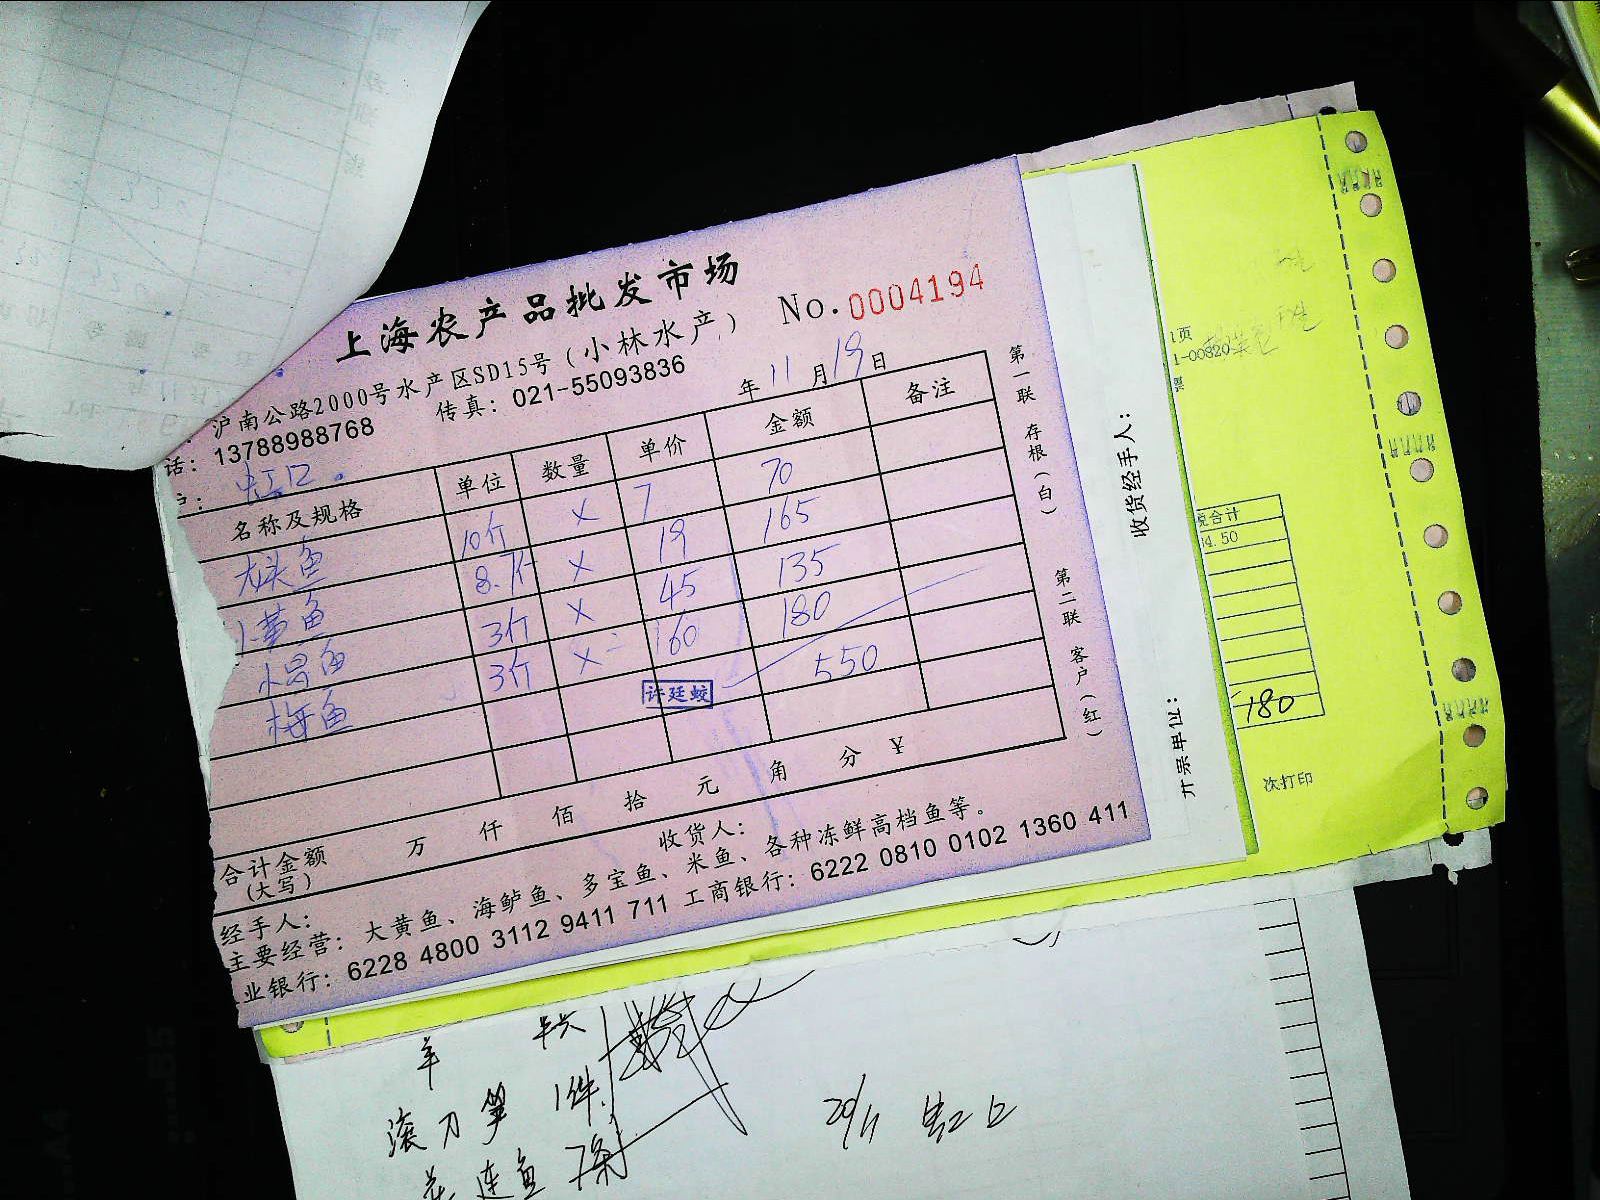 上海农产品批发市场
No.0004194
沪南公路2000号水产区SD15号(小林水产)
话: 13788988768 传真: 021-55093836
年 11 月 19 日
户: 虹口.
名称及规格 单位 数量 单价 金额 备注
大头鱼 10斤 × 7 70
小黄鱼 8.7斤 × 19 165
小昌鱼 3斤 × 45 135
梅鱼 3斤 × 60 180
550
许廷蛟
合计金额 万 仟 佰 拾 元 角 分 ¥
(大写)
经手人: 收货人:
主要经营: 大黄鱼、海鲈鱼、多宝鱼、米鱼、各种冻鲜高档鱼等。
业银行: 6228 4800 3112 9411 711 工商银行: 6222 0810 0102 1360 411
第一联 存根(白)
第二联 客户(红)
收货经手人:
开票单位:
1页
1-00820
税合计
4.50
180
次打印
滚刀笋 1件
花连鱼 7条
20/11 虹口